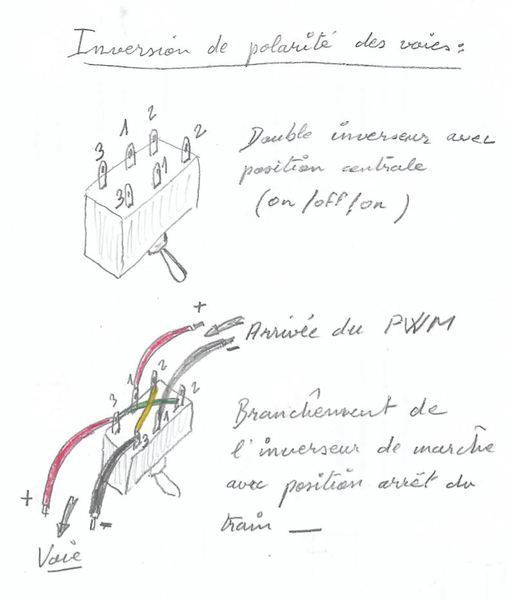 Inversion de polarité des voies:
2
1
2
3
1
3
Double inverseur avec
position centrale
(on/off/on)
+
Arrivée du PWM
-
2
1
2
3
1
3
Branchement de
l'inverseur de marche
avec position arrêt du
train
+
-
Voie